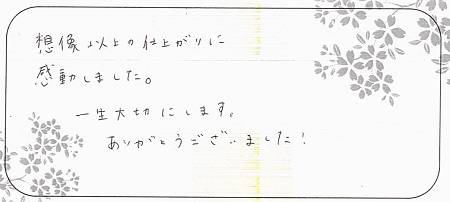 想像以上の仕上がりに
感動しました。
一生大切にします。
ありがとうございました！